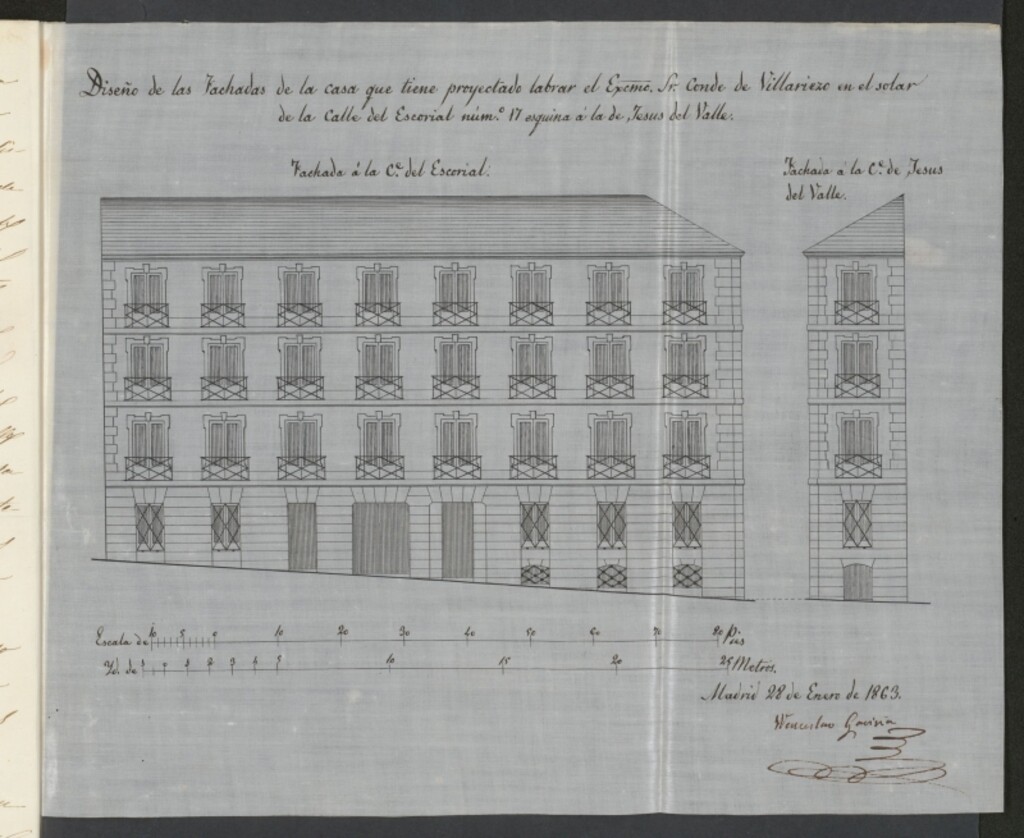 Diseño de las Fachadas de la casa que tiene proyectado labrar el Excmo. Sr. Conde de Villariezo en el solar
de la Calle del Escorial núm.º 17 esquina á la de Jesus del Valle.
Fachada á la C.e del Escorial.
Fachada á la C.e de Jesus
del Valle.
Escala de 10 5 0 10 20 30 40 50 60 70 80 Pies
Id. de 1 0 1 2 3 4 5 10 15 20 25 Metros.
Madrid 28 de Enero de 1863.
Wenceslao Gaviña